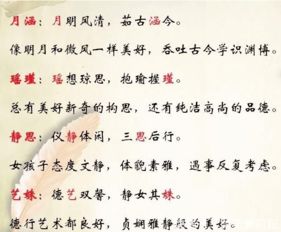 月涵：月明风清，茹古涵今。
像明月和微风一样美好，吞吐古今学识渊博。
瑶瑾：瑶想琼思，抱瑜握瑾。
总有美好新奇的构思，还有纯洁高尚的品德。
静思：仪静体闲，三思后行。
女孩子态度文静，体貌素雅，遇事反复考虑。
艺姝：德艺双馨，静女其姝。
德行艺术都良好，贞娴雅静般的美好。